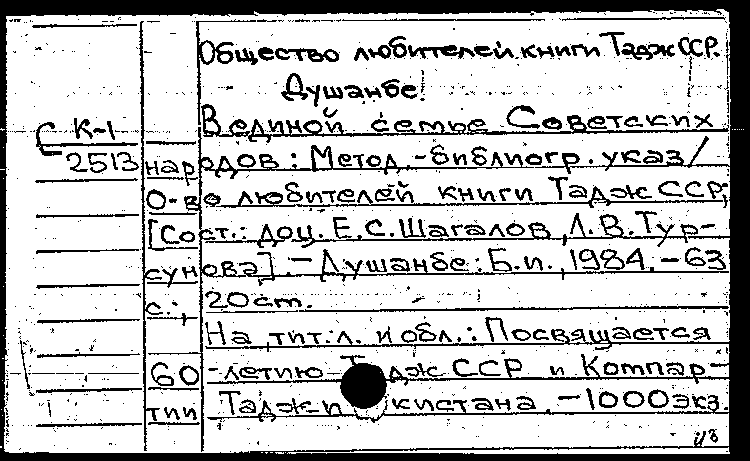 Общество любителей книги Тадж ССР.
Душанбе.
В единой семье Советских
С К-1
2513
народов : Метод.-библиогр. указ/
О-во любителей книги Тадж ССР;
[Сост.: доц. Е.С. Шагалов, Л.В. Тур-
сунова]. – Душанбе : Б.и., 1984. – 63
с.; 20 см.
На тит. л. и обл.: Посвящается
60-летию Тадж ССР и Компар-
тии Таджикистана. – 1000 экз.